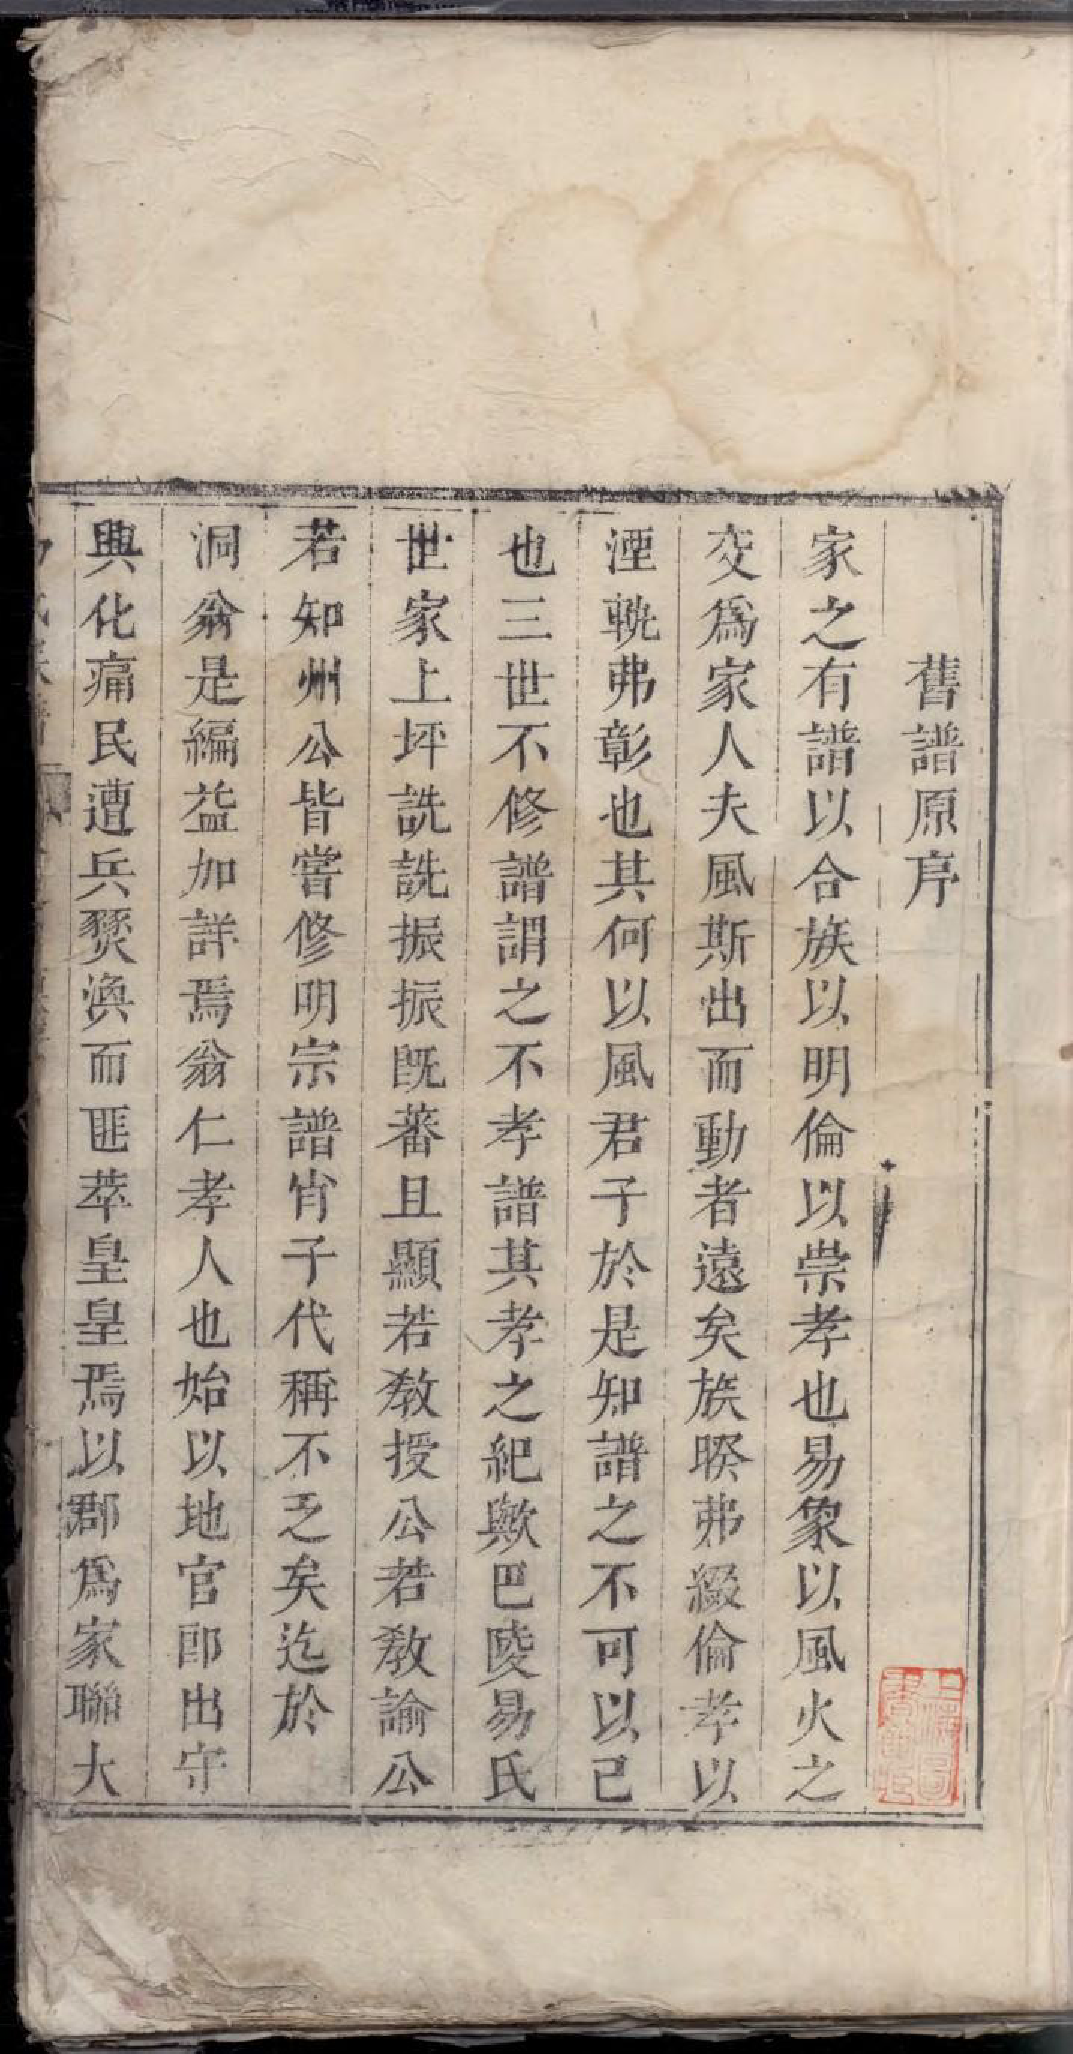 舊譜原序
家之有譜以合族以明倫以崇孝也易象以風火之
交爲家人夫風斯出而動者遠矣族暌弗綴倫孝以
湮輓弗彰也其何以風君子於是知譜之不可以已
也三世不修譜謂之不孝譜其孝之紀歟巴陵易氏
世家上坪詵詵振振既蕃且顯若教授公若教諭公
若知州公皆嘗修明宗譜冑子代稱不乏矣迄於
洞翁是編益加詳焉翁仁孝人也始以地官郎出守
興化痛民遭兵燹渙而匪萃皇皇焉以郡爲家聯大